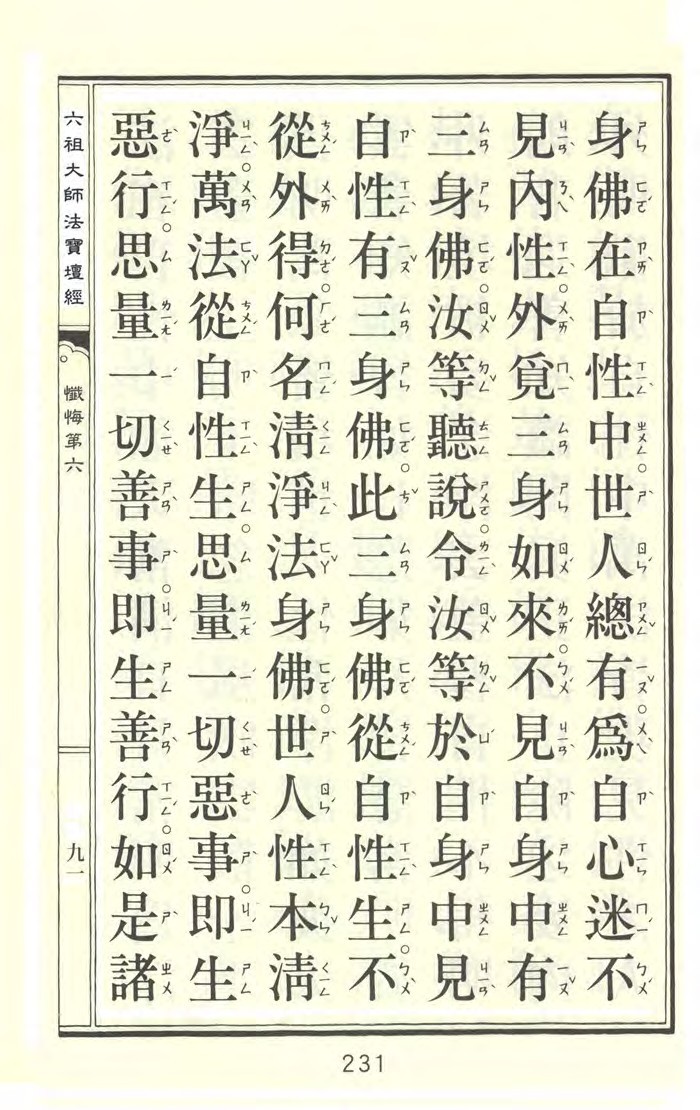 身佛在自性中。世人總有。為自心迷不
見內性。外覓三身如來。不見自身中有
三身佛。汝等聽說。令汝等於自身中見
自性有三身佛。此三身佛從自性生。不
從外得。何名清淨法身佛。世人性本清
淨。萬法從自性生。思量一切惡事。即生
惡行。思量一切善事。即生善行。如是諸
六祖大師法寶壇經
懺悔第六
九一
231